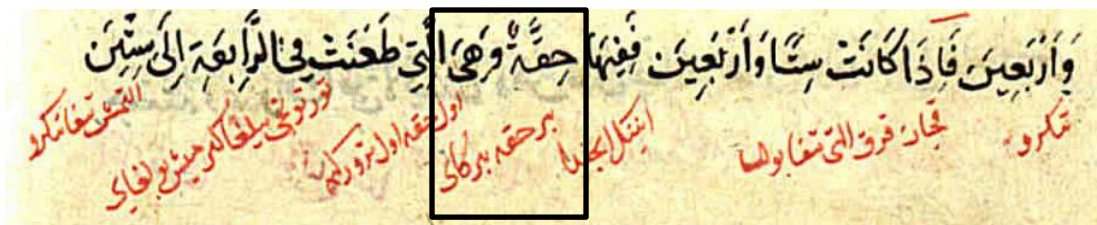 وَأَرْبَعِينَ فَإِذَا كَانَتْ سِتًّا وَأَرْبَعِينَ فَفِيهَا حِقَّةٌ وَهِيَ الَّتِي طَعَنَتْ فِي الرَّابِعَةِ إِلَى سِتِّينَ
تكرو قچان قرق التى تيفا بولسا اننكل ايچندا بر حقه بيركاى اول حقه اول تورور كيم تورتونچى ييلغا كيرميش بولغاى التمش تيفا تكرو